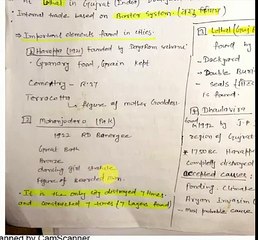 Lothal in Gujrat (India)
Internal trade based on Barter System (
⇒ Important elements found in cities.
1 Harappa (1921) founded by Dayaram Sahani
Granary food, Grain kept
Cemetery - R-37
Terracotta
↳ figure of mother Goddess
2 Mohanjodaro (Pak)
1922 RD Banerjee
Great Bath
Bronze
dancing girl statue
figure of bearded man.
It is the only city destroyed 7 times
and constructed 7 times (7 layers found)
3 Lothal (Guj
found by
- Dockyard
- Double Buri
seals
is found.
Dholavira
1992 by J.P
region of Gujrat
* 1750 BC Harappa
completely destroyed
accepted causes:
flooding, Climate
Aryan Invasion
- most probable cause
anned by CamScanner